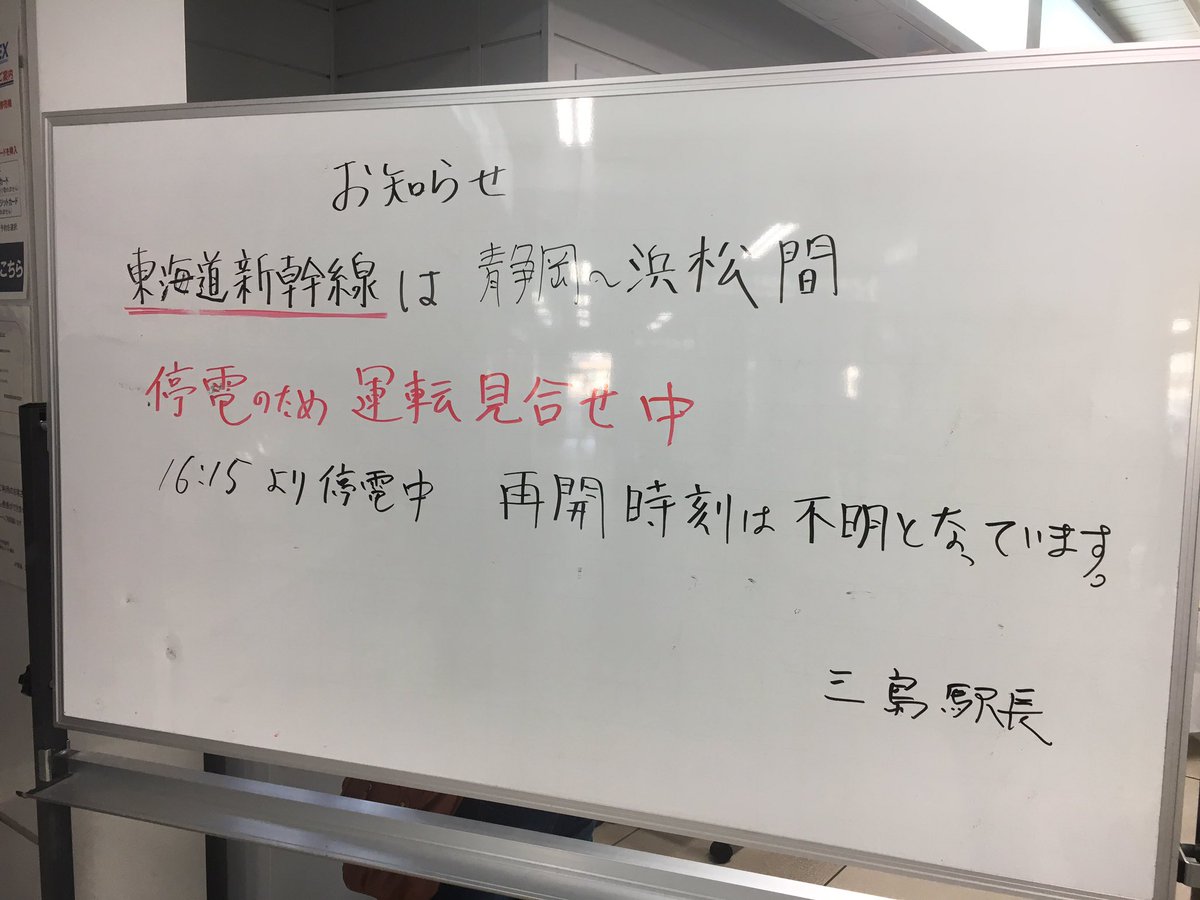 EX
ご案内
こちら
お知らせ
東海道新幹線は 静岡~浜松間
停電のため 運転見合せ中
16:15より停電中 再開時刻は不明となっています。
三島駅長